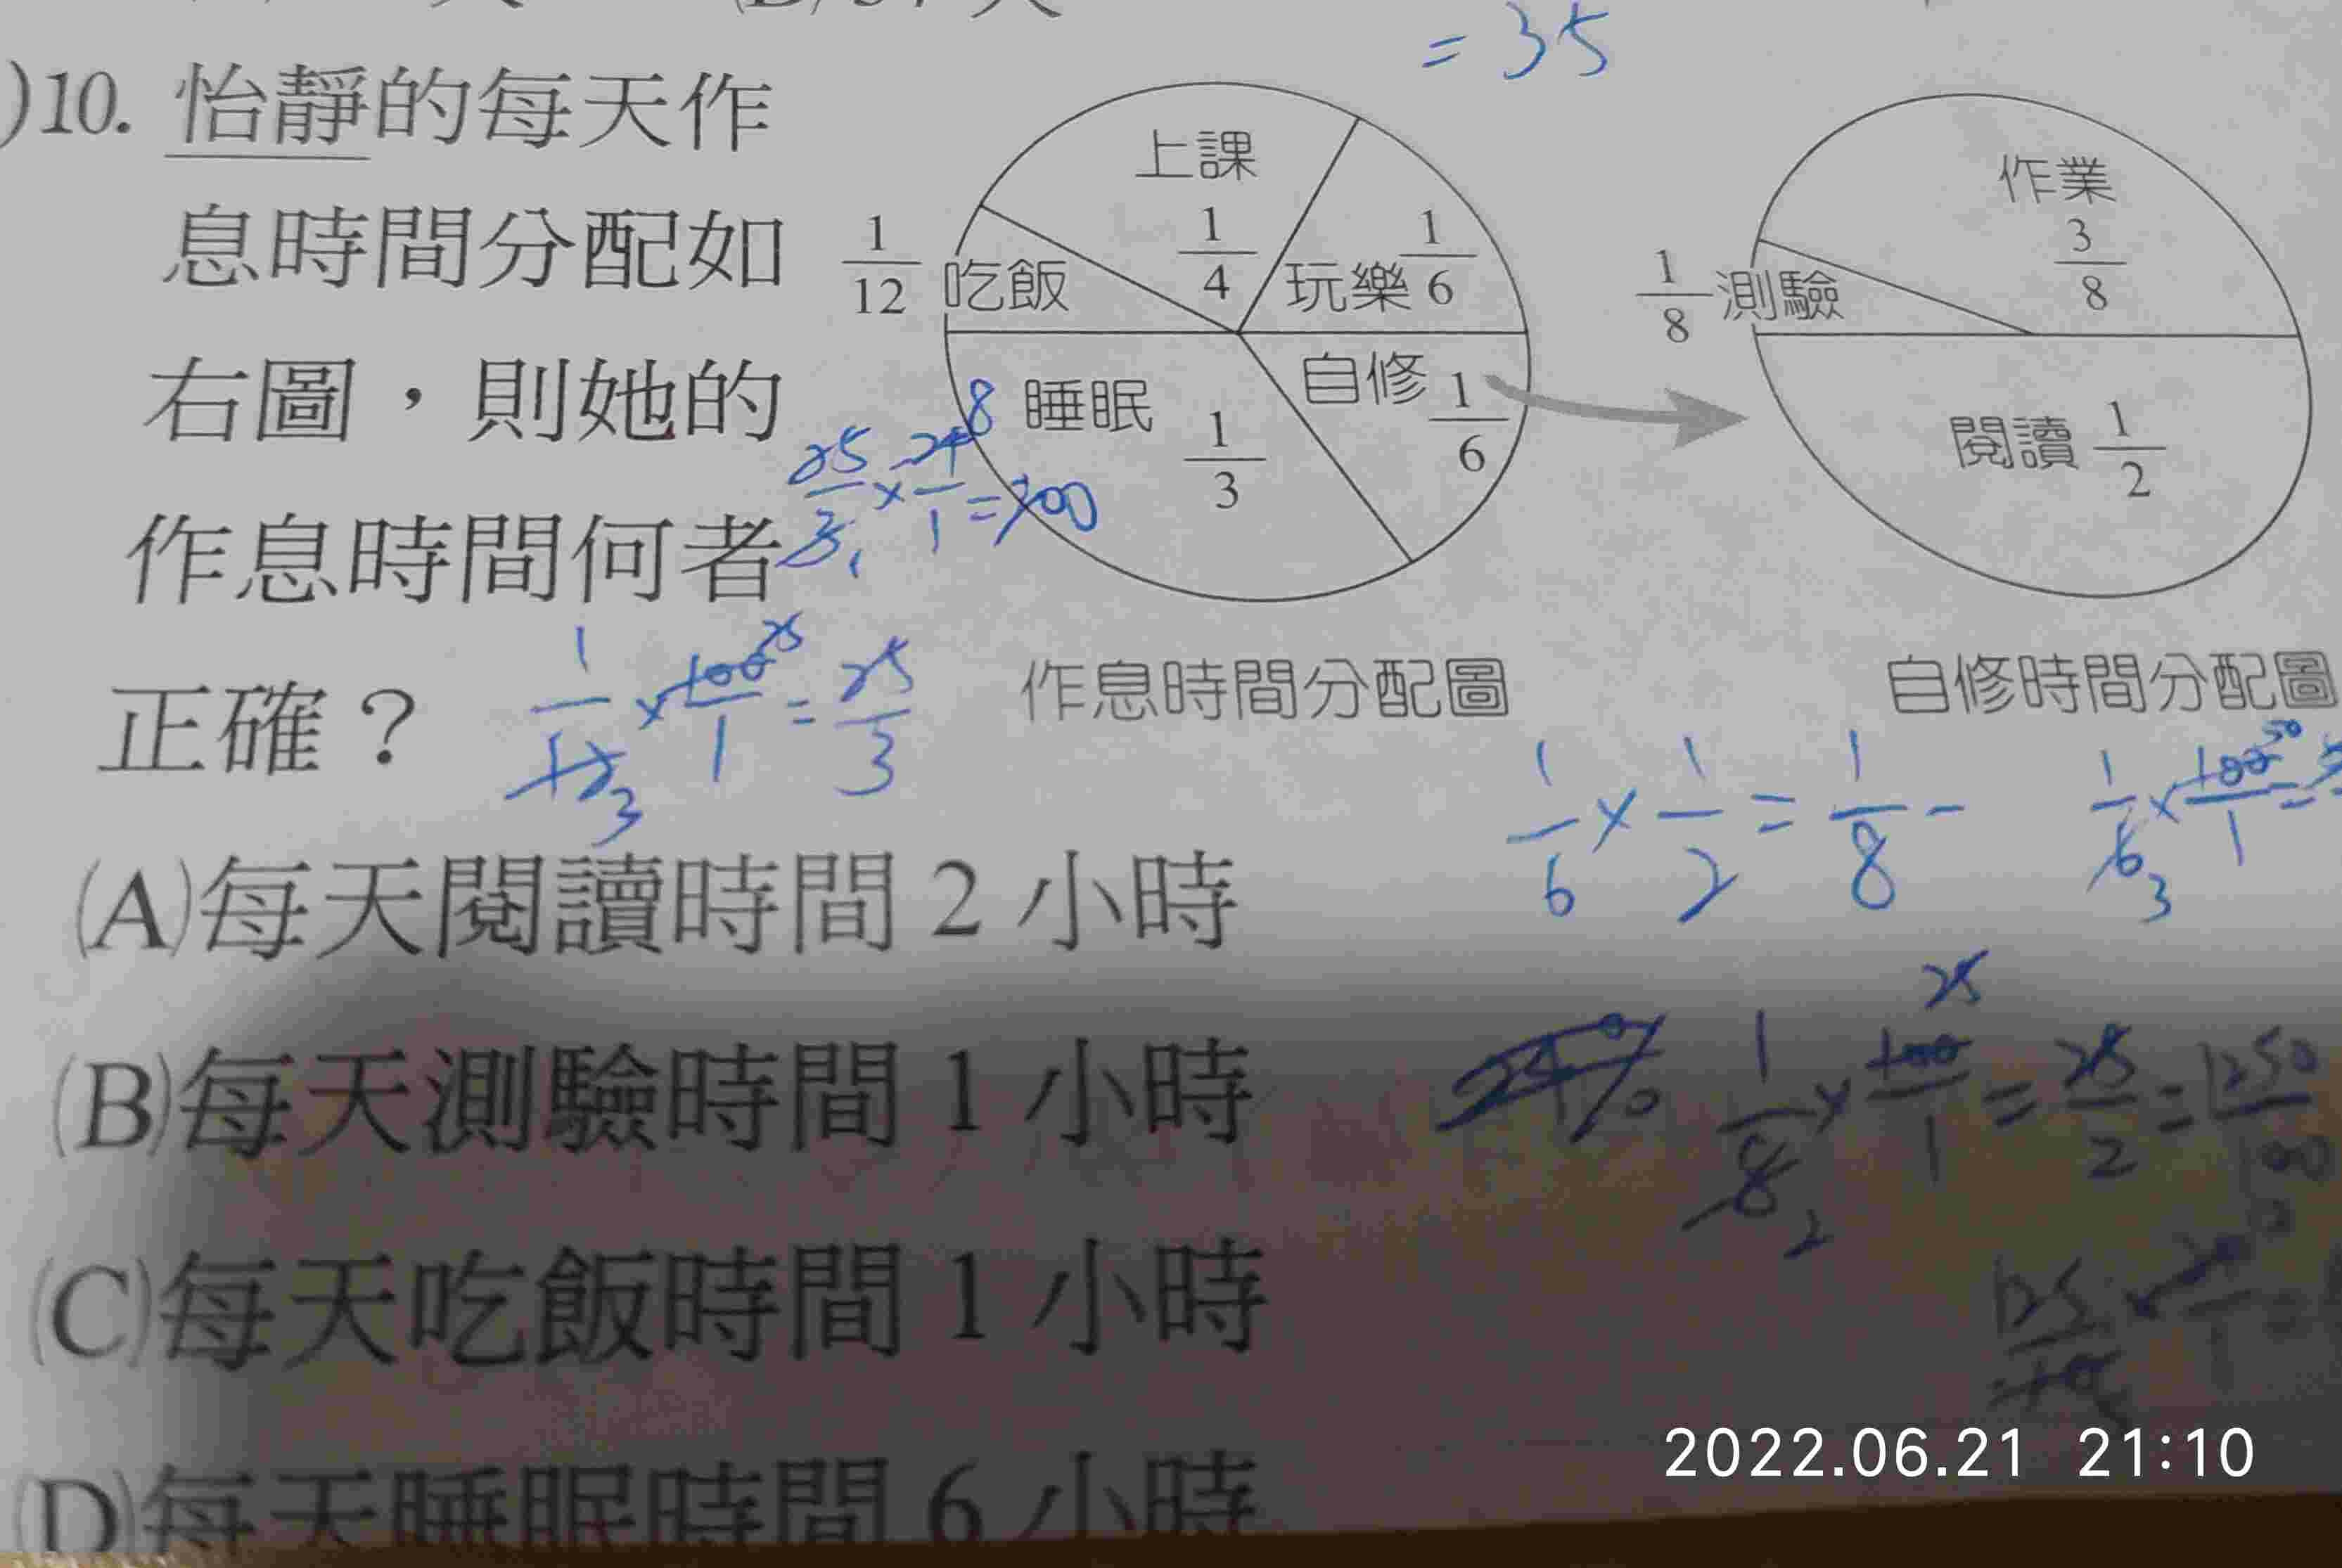 = 35
)10. 怡靜的每天作
息時間分配如
右圖，則她的
作息時間何者
正確？
上課
1/4
玩樂 1/6
1/12 吃飯
睡眠 1/3
自修 1/6
作業
3/8
1/8 測驗
閱讀 1/2
作息時間分配圖
自修時間分配圖
8
25/3 1 × 24/1 = 200
1/12 3 × 100 25/1 = 25/3
1/6 × 1/2 = 1/8 -
1/6 3 × 100 50/1 =
(A)每天閱讀時間 2 小時
(B)每天測驗時間 1 小時
1/8 2 × 100 25/1 = 25/2 = 1250/100
(C)每天吃飯時間 1 小時
(D)每天睡眠時間 6 小時
2022.06.21 21:10